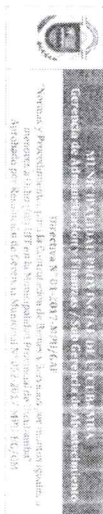 MUNICIPALIDAD PROVINCIAL DE UTCUBAMBA
Gerencia de Administración y Finanzas / Sub Gerencia de Abastecimiento
Directiva N° 01-2017-MPU/GAF
Normas y Procedimientos para la Contratación de Bienes y Servicios por montos iguales o
menores a 8 UIT en la Municipalidad Provincial de Utcubamba
Aprobada por Resolución de Gerencia Municipal N°